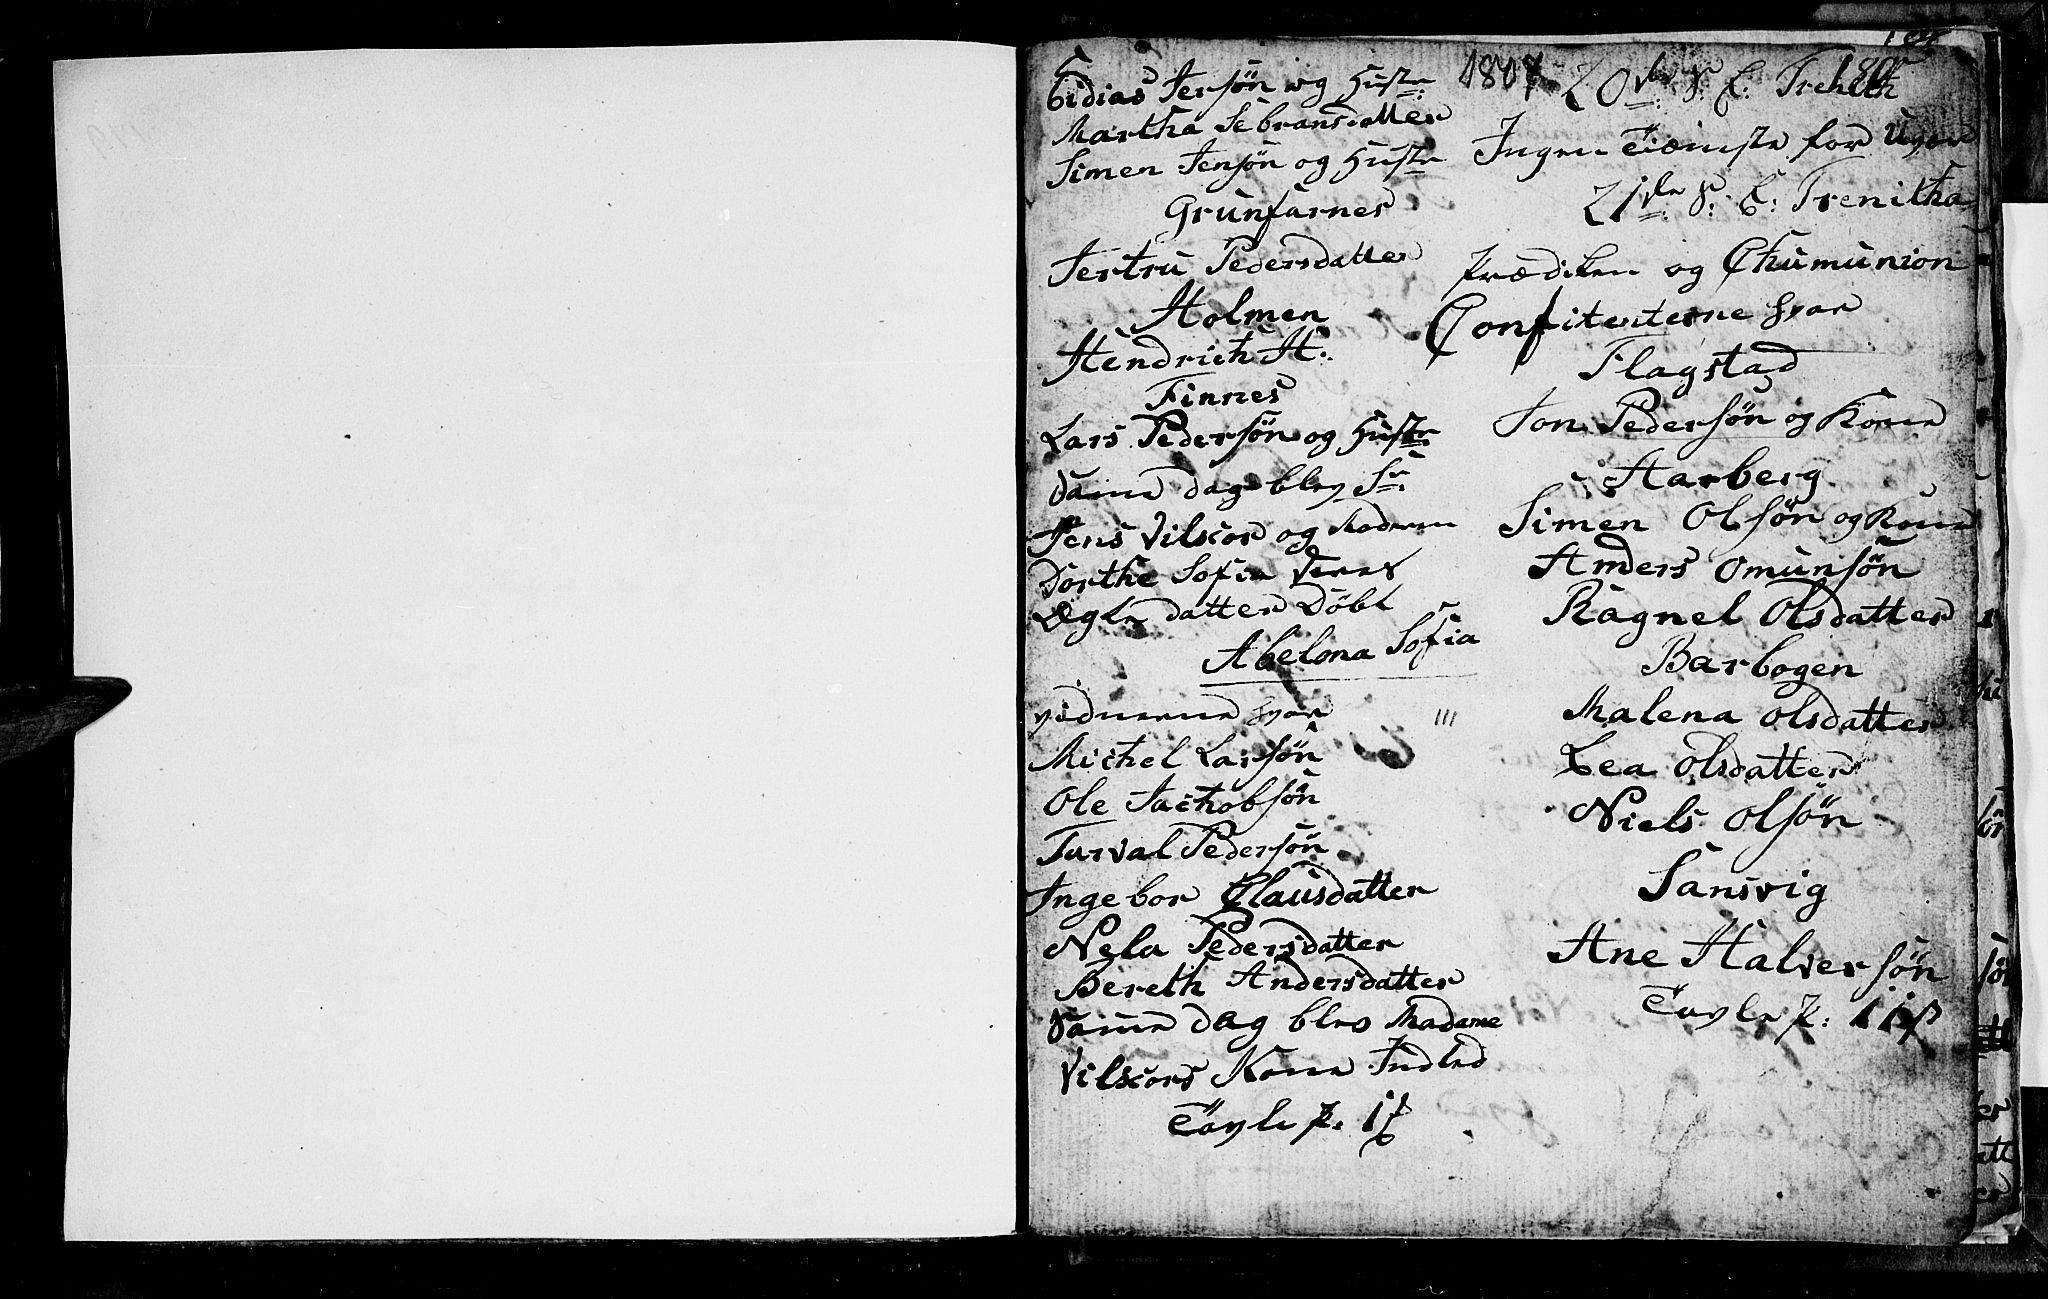 1807
Jersøn og Hustr:
Martha Sebransdatter
Simen Jensøn og Hustr
Grunfarnes
Jertru Pedersdatter
Holmen
Hendrich H:
Finnes
Lars Pedersøn og Hustr
Samme dag blev Sr:
Jens Vilscov og Madamm
Dorthe Sofia
Ægte datter Døbt
Abelona Sofia
vidnerne Hvar
Michel Larsøn
Ole Jachobsøn
Turval Pedersøn
Ingebor Clausdatter
Nela Pedersdatter
Bereth Andersdatter
Samme dag blev Madame
Vilscovs Kone Indled
Tavle p: 1
20de S: E: Treheth
Ingen Tiæniste for Uvær
21de S: E: Trenitha
Prædiken og Chumunion
Confitenterne Hvar
Flagstad
Jon Pedersøn og Kone
Aarberg
Simen Olsøn og Kone
Anders Omunsøn
Ragnel Olsdatter
Barbogen
Malena Olsdatter
Lea Olsdatter
Niels Olsøn
Sansvig
Ane Halversøn
Tavle p: 11 ß